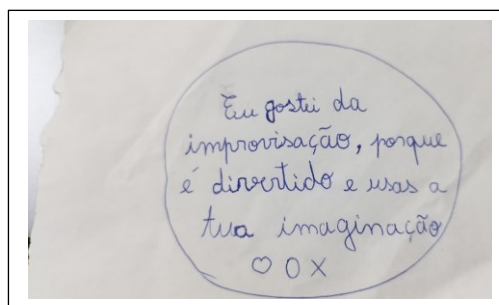 Eu gostei da
improvisação, porque
é divertido e usas a
tua imaginação
♡ O X